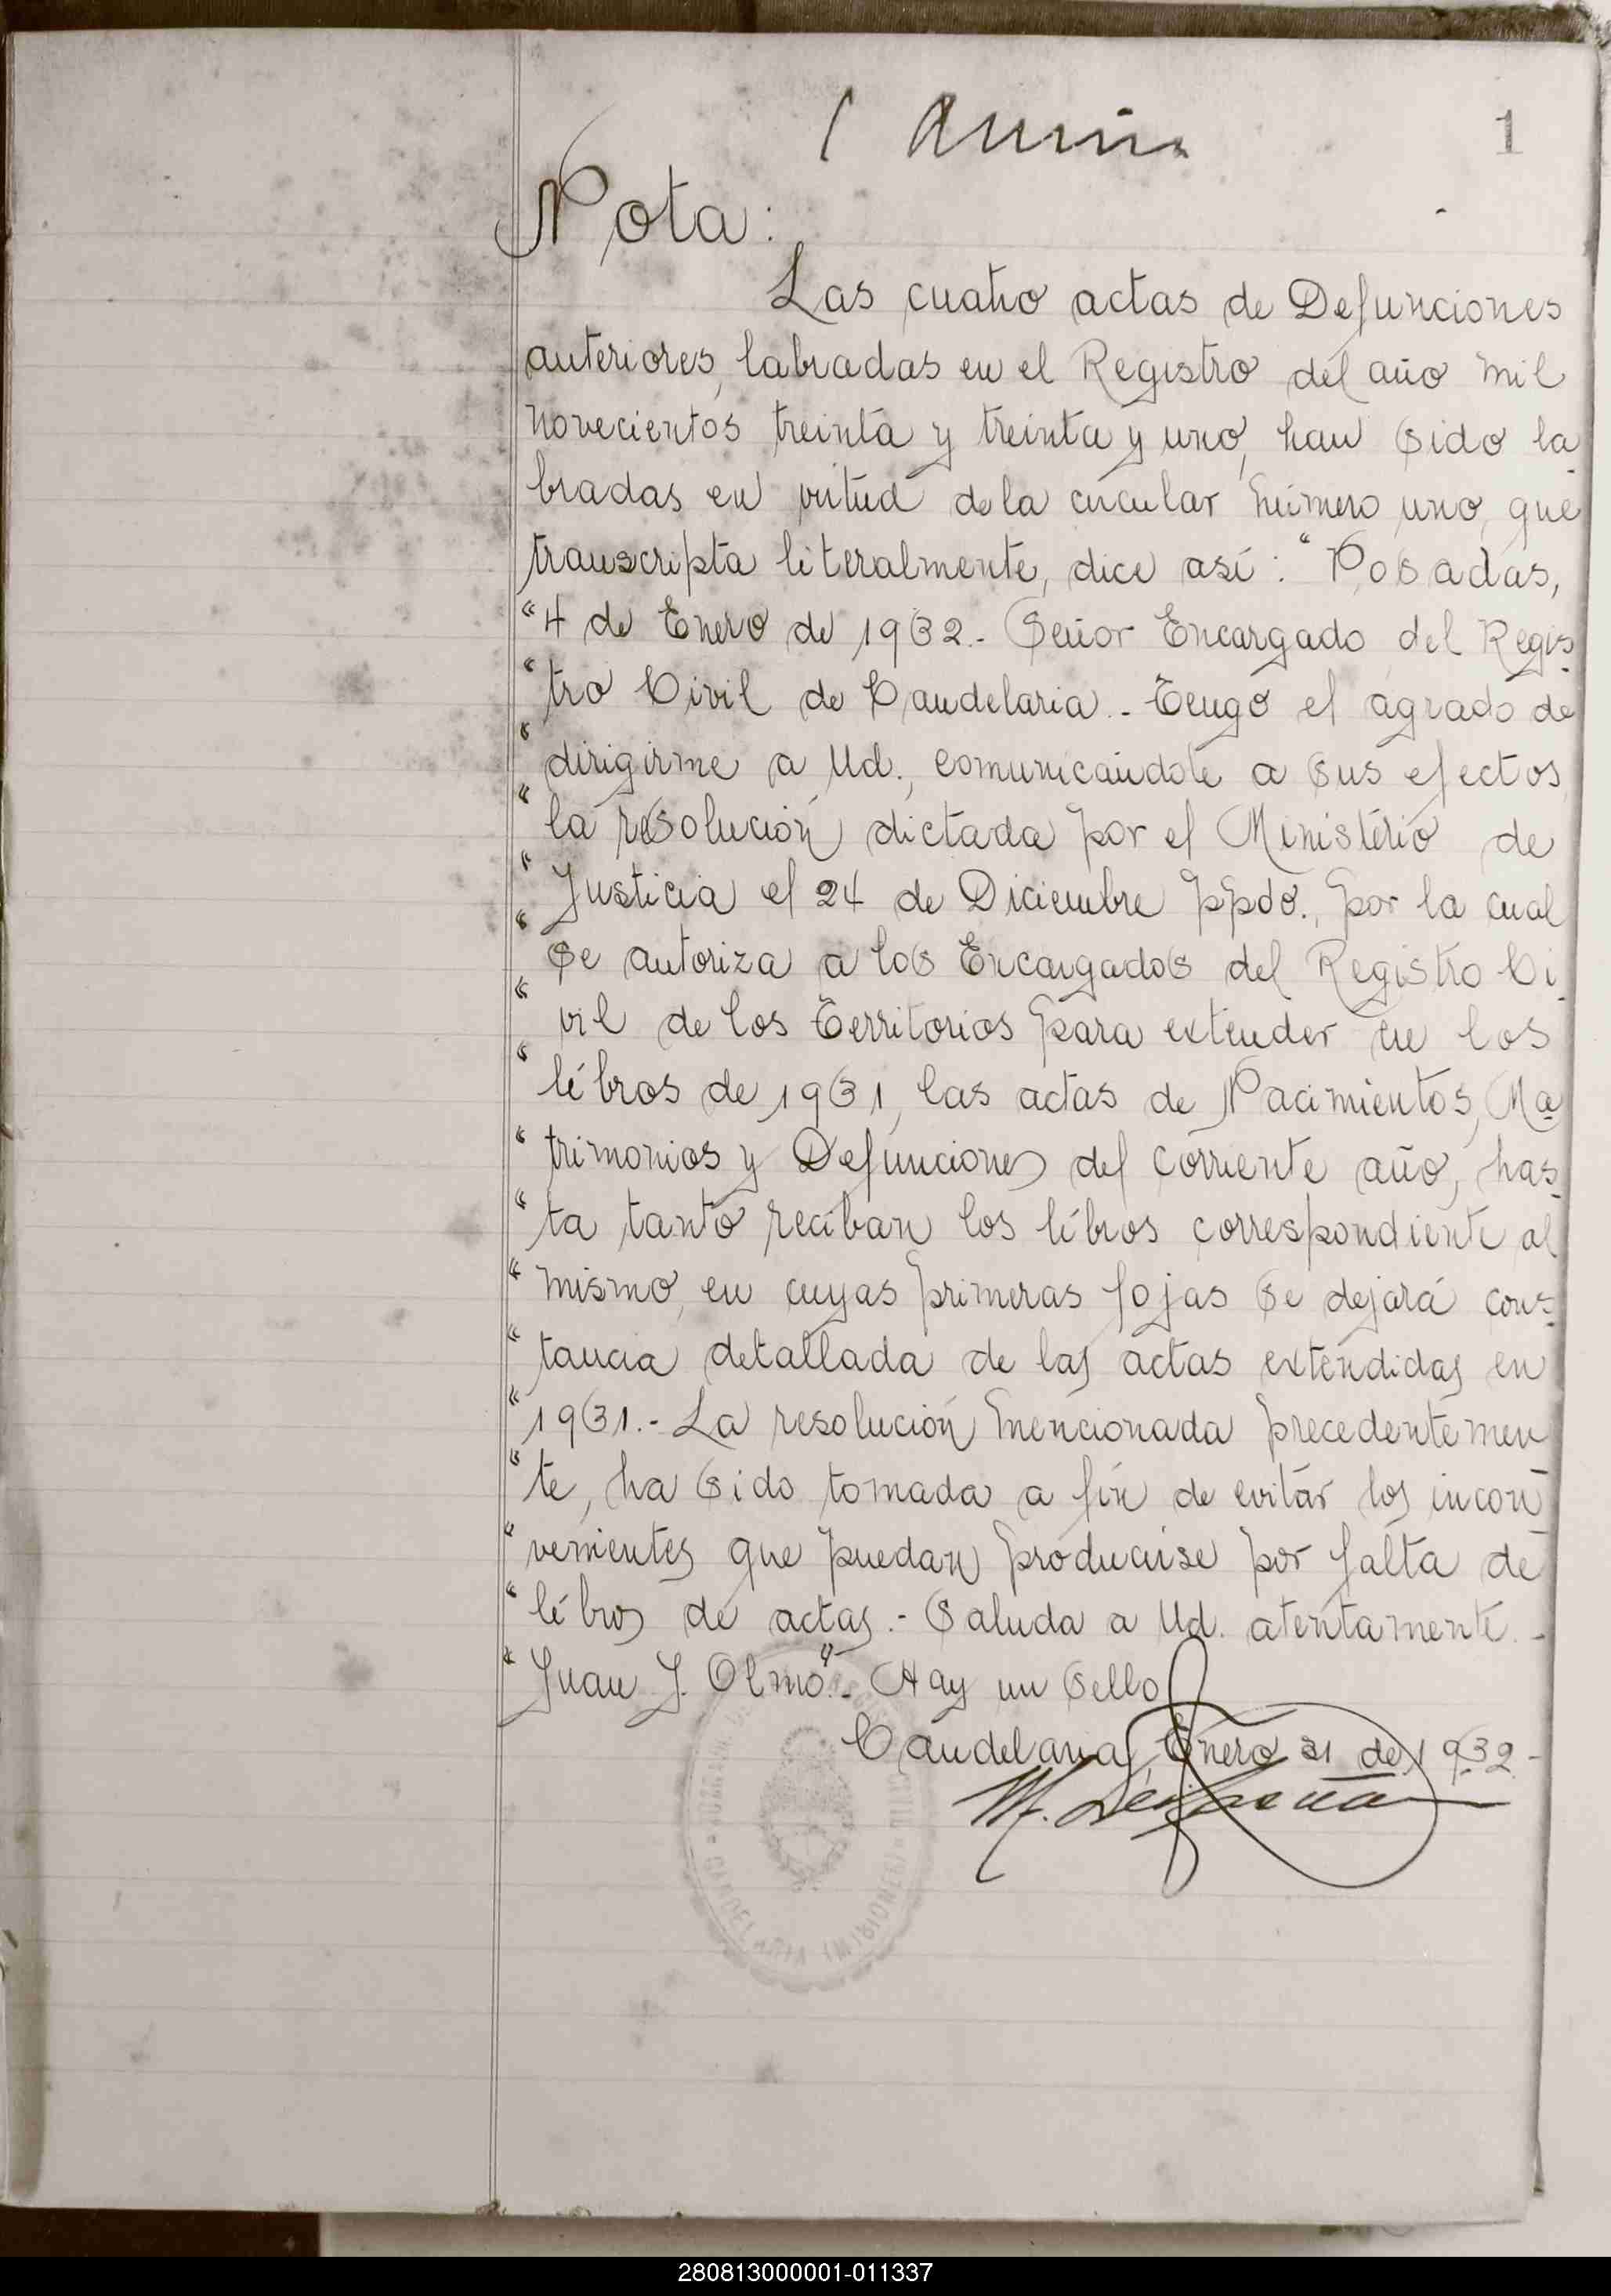 1
Nota:
Las cuatro actas de Defunciones
anteriores, labradas en el Registro del año mil
novecientos treinta y treinta y uno, han sido la
bradas en virtud de la circular número uno, que
transcripta literalmente, dice así: "Posadas,
"4 de Enero de 1932.- Señor Encargado del Regis-
"tro Civil de Candelaria.- Tengo el agrado de
"dirigirme a Ud., comunicándole a sus efectos
"la resolución dictada por el Ministerio de
"Justicia el 24 de Diciembre ppdo., por la cual
"se autoriza a los Encargados del Registro Ci-
"vil de los Territorios para extender en los
"libros de 1931, las actas de Nacimientos, Ma-
"trimonios y Defunciones del corriente año, has-
"ta tanto reciban los libros correspondiente al
"mismo, en cuyas primeras fojas se dejará cons-
"tancia detallada de las actas extendidas en
"1931.- La resolución mencionada precedentemen
"te, ha sido tomada a fin de evitar los incon-
"venientes que puedan producirse por falta de
"libros de actas.- Saluda a Ud. atentamente.-
"Juan J. Olmo".- Hay un sello
Candelaria, Enero 31 de 1932.-
CANDELARIA (MISIONES)
280813000001-011337